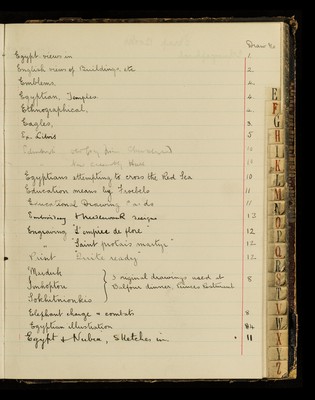 Draw No
Egypt views in 1
English views of Buildings, etc 2
Emblems 2
Egyptian, Temples 4
Ethnographical, 2
Eagles, 3
Ex Libris 5
10
11
Egyptians attempting to cross the Red Sea 10
Education means by Froebels 11
Educational Drawing " ards 11
Embroidery & Needlework designs 13
Engraving "L'empire de flore" 12
" "Saint protais martyr" 12
" Print 12
Marduk
Imhoptou } 3 original drawings used at 8
Pokhitnionkis Balfour dinner,
Elephant charge & combats 8
Egyptian illustration 4
Egypt & Nubia, Sketches in 11
E
F
G
H
I
K
L
M
N
O
P
Q
R
S
T
V
W
X
Y
Z